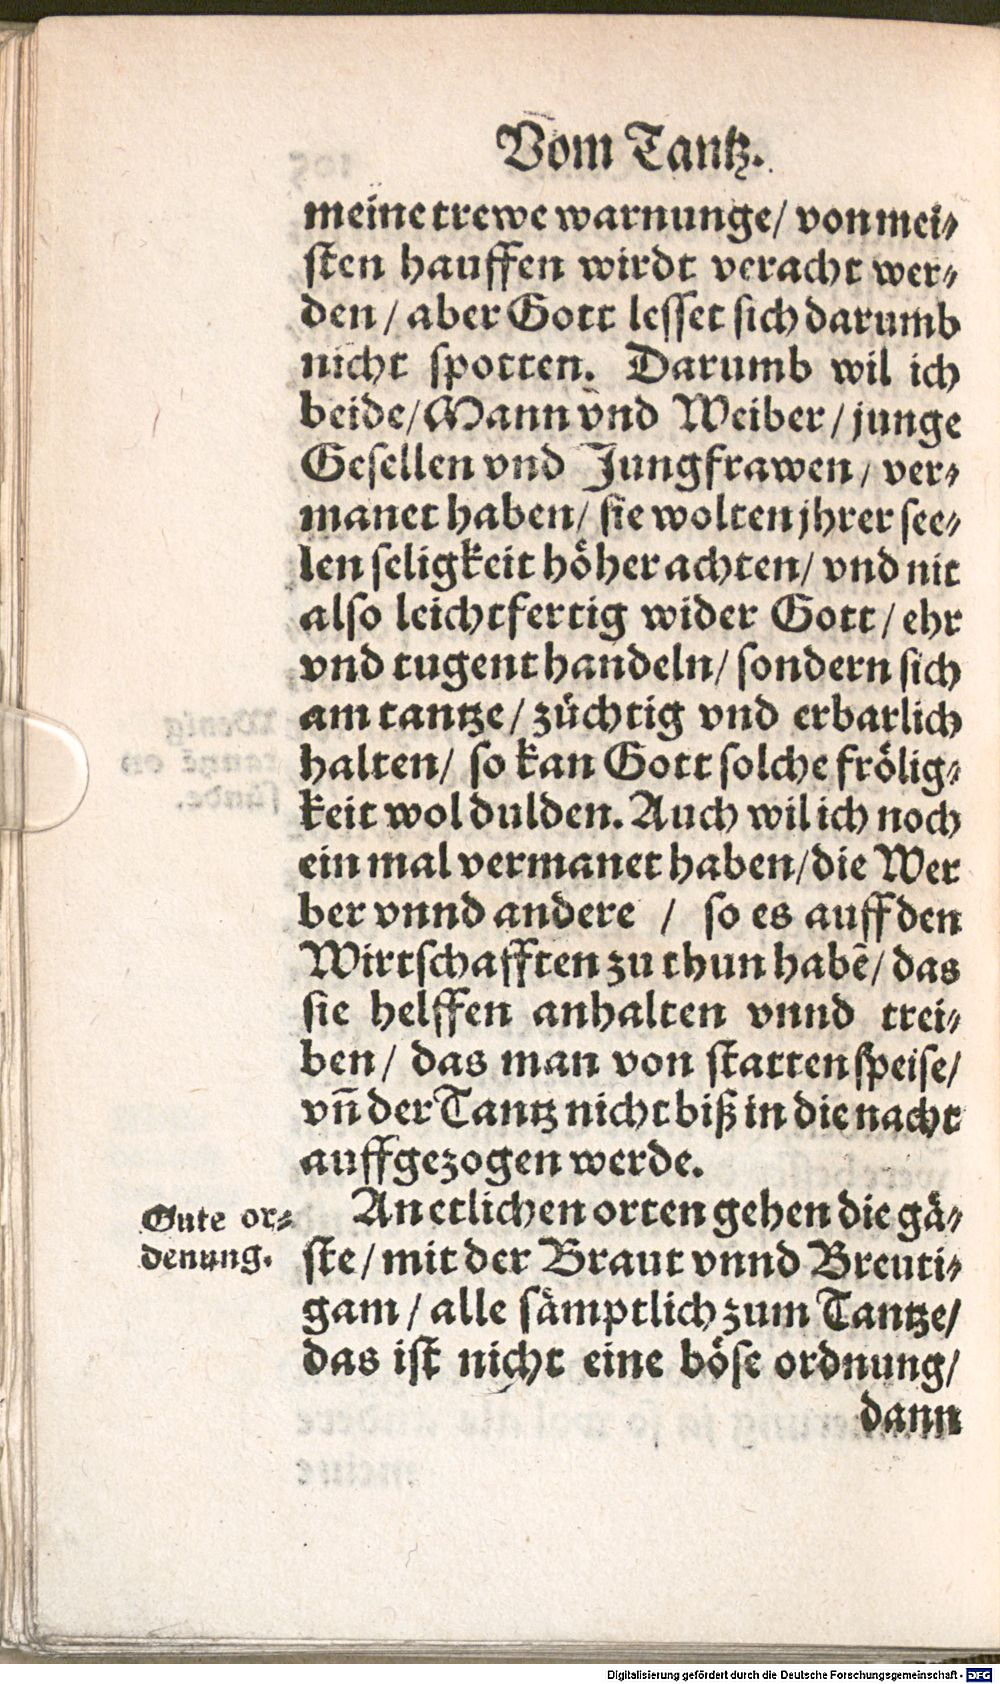 Vom Tantz.
meine trewe warnunge/ von mei⸗
sten hauffen wirdt veracht wer⸗
den/ aber Gott lesset sich darumb
nicht spotten. Darumb wil ich
beide/ Mann vnd Weiber/ junge
Gesellen vnd Jungfrawen/ ver⸗
manet haben/ sie wolten jhrer see⸗
len seligkeit höher achten/ vnd nit
also leichtfertig wider Gott/ ehr
vnd tugent handeln/ sondern sich
am tantze/ züchtig vnd erbarlich
halten/ so kan Gott solche frölig⸗
keit wol dulden. Auch wil ich noch
ein mal vermanet haben/ die Wer
ber vnnd andere / so es auff den
Wirtschafften zu thun habē/ das
sie helffen anhalten vnnd trei⸗
ben/ das man von statten speise/
vn̄ der Tantz nicht biß in die nacht
auffgezogen werde.
Gute or⸗
denung.
An etlichen orten gehen die gä⸗
ste/ mit der Braut vnnd Breuti⸗
gam/ alle sämptlich zum Tantze/
das ist nicht eine böse ordnung/
dann
Digitalisierung gefördert durch die Deutsche Forschungsgemeinschaft - DFG